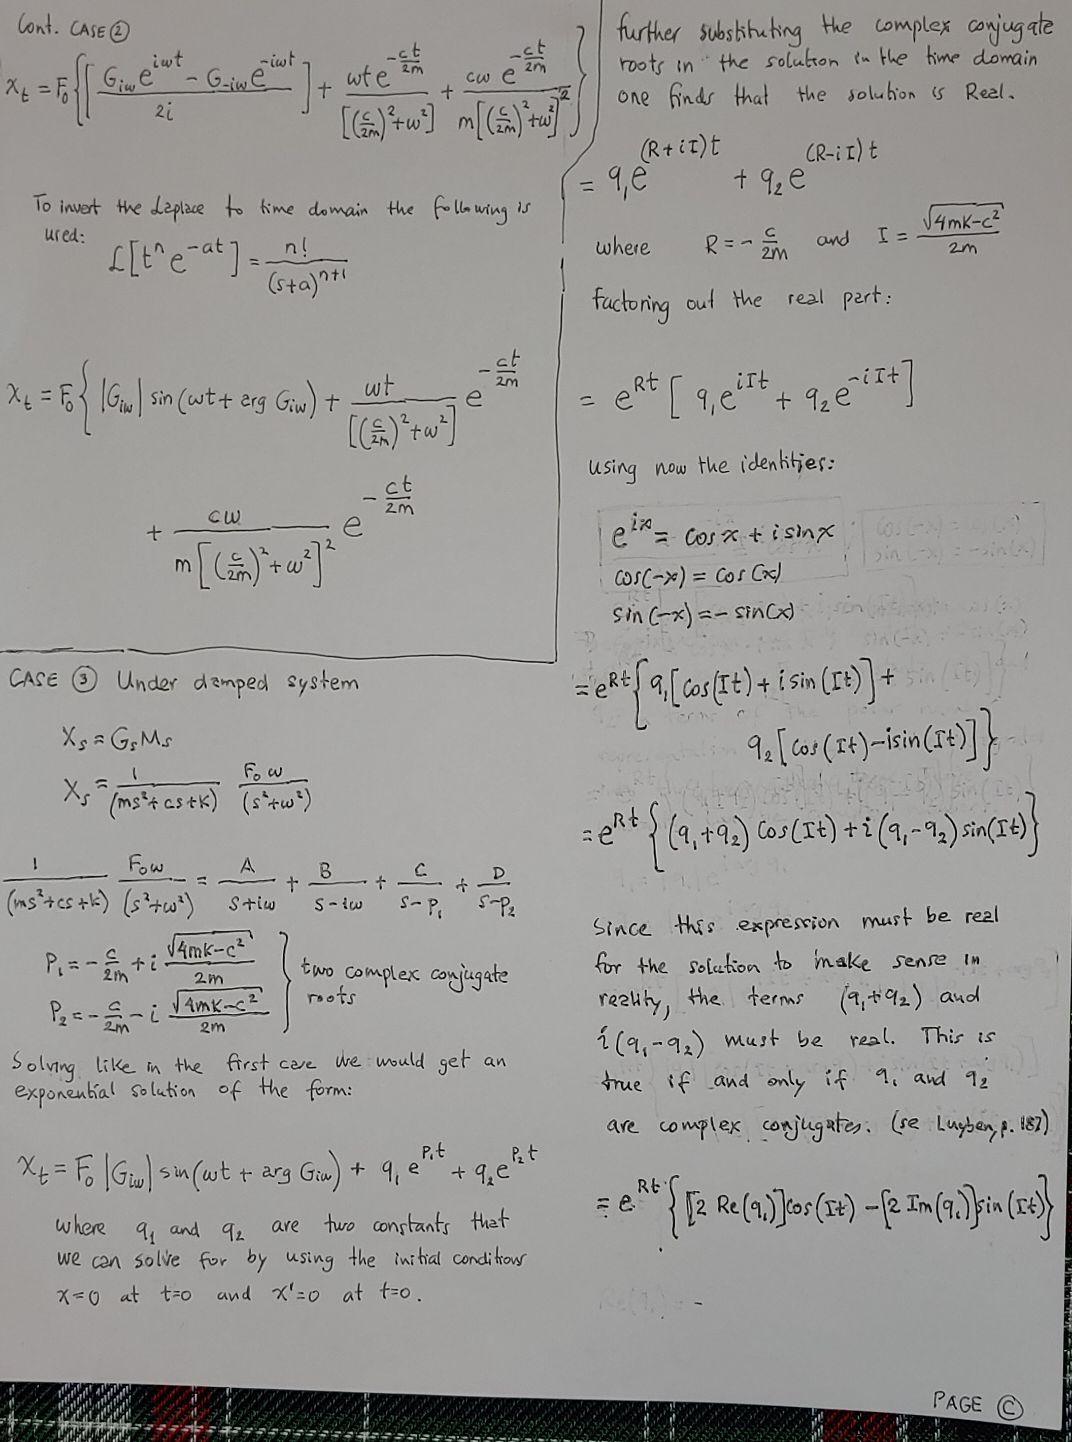 Cont. CASE ②
x_t = F_0 { [ (G_iω e^{iωt} - G_-iω e^{-iωt}) / 2i ] + ωt e^{-ct/2m} / [(c/2m)² + ω²] + cω e^{-ct/2m} / m[(c/2m)² + ω²]² }
To invert the Laplace to time domain the following is
used:
ℒ[t^n e^{-at}] = n! / (s+a)^{n+1}
x_t = F_0 { |G_iω| sin(ωt + arg G_iω) + ωt / [(c/2m)² + ω²] e^{-ct/2m}
+ cω / m[(c/2m)² + ω²]² e^{-ct/2m}
CASE ③ Under damped system
X_s = G_s M_s
X_s = 1/(ms²+cs+k) F_0 ω/(s²+ω²)
1/(ms²+cs+k) F_0 ω/(s²+ω²) = A/(s+iω) + B/(s-iω) + C/(s-P_1) + D/(s-P_2)
P_1 = -c/2m + i √(4mk-c²)/2m
P_2 = -c/2m - i √(4mk-c²)/2m
two complex conjugate
roots
Solving like in the first case we would get an
exponential solution of the form:
x_t = F_0 |G_iω| sin(ωt + arg G_iω) + q_1 e^{P_1 t} + q_2 e^{P_2 t}
where q_1 and q_2 are two constants that
we can solve for by using the initial conditions
x=0 at t=0 and x'=0 at t=0.
further substituting the complex conjugate
roots in the solution in the time domain
one finds that the solution is Real.
= q_1 e^{(R+iI)t} + q_2 e^{(R-iI)t}
where R = -c/2m and I = √(4mk-c²)/2m
factoring out the real part:
= e^{Rt} [ q_1 e^{iIt} + q_2 e^{-iIt} ]
using now the identities:
e^{ix} = cos x + i sin x
cos(-x) = cos(x)
sin(-x) = - sin(x)
= e^{Rt} { q_1 [cos(It) + i sin(It)] +
q_2 [cos(It) - i sin(It)] }
= e^{Rt} { (q_1+q_2) cos(It) + i (q_1-q_2) sin(It) }
Since this expression must be real
for the solution to make sense in
reality, the terms (q_1+q_2) and
i(q_1-q_2) must be real. This is
true if and only if q_1 and q_2
are complex conjugates. (se Luyben, p. 187)
= e^{Rt} { [2 Re(q_1)] cos(It) - [2 Im(q_1)] sin(It) }
PAGE Ⓒ